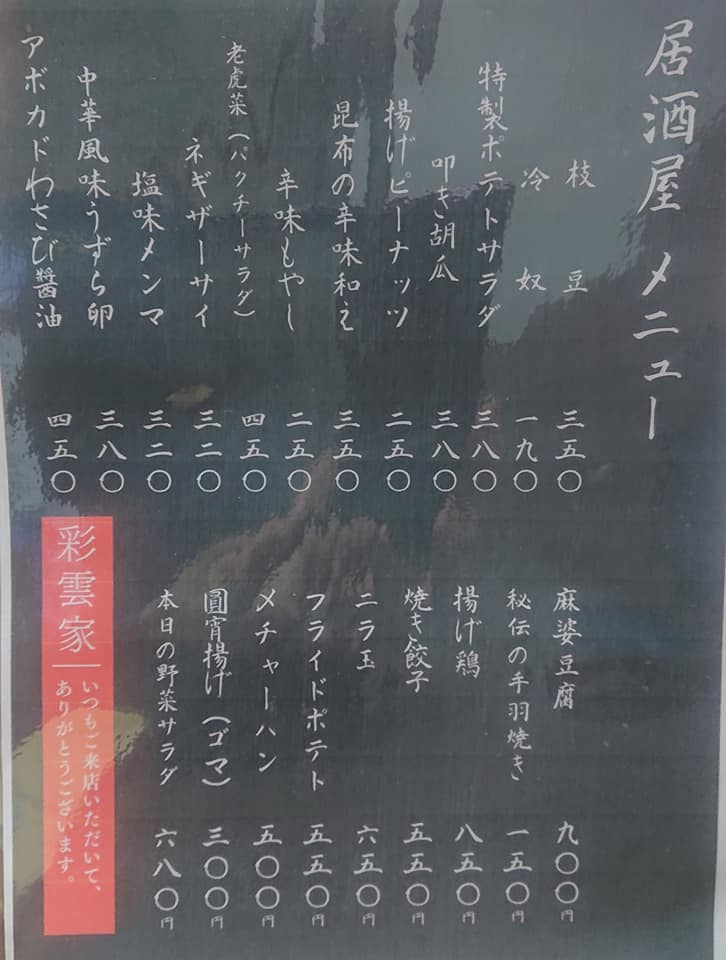 居酒屋 メニュー
枝豆 三五〇
冷奴 一九〇
特製ポテトサラダ 三八〇
叩き胡瓜 三八〇
揚げピーナッツ 二五〇
昆布の辛味和え 三五〇
辛味もやし 二五〇
老虎菜（パクチーサラダ） 四五〇
ネギザーサイ 三二〇
塩味メンマ 三二〇
中華風味うずら卵 三八〇
アボカドわさび醤油 四五〇
麻婆豆腐 九〇〇円
秘伝の手羽焼き 一五〇円
揚げ鶏 八五〇円
焼き餃子 五五〇円
ニラ玉 六五〇円
フライドポテト 五五〇円
メチャーハン 五〇〇円
圓宵揚げ（ゴマ） 三〇〇円
本日の野菜サラダ 六八〇円
彩雲家
いつもご来店いただいて、
ありがとうございます。